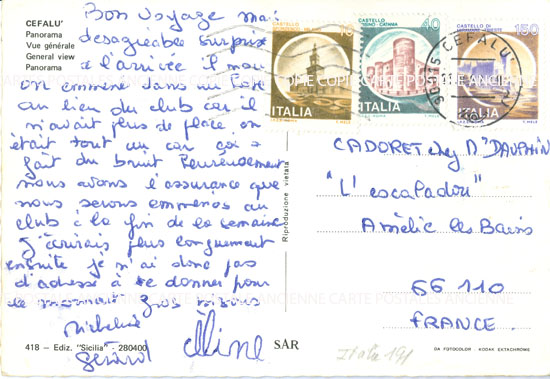 CEFALU'
Panorama
Vue générale
General view
Panorama
Bon voyage mai
desagréables surprise
à l'arrivée il nous
on emmene dans un
au lieu du club car il
n'avait plus de place on
était tout un car qui a
fait du bruit heureusement
nous avons l'assurance que
nous serons emmenés au
club à la fin de la semaine
J'écrirais plus longuement
ensuite je n'ai donc pas
d'adresse à te donner pour
le moment Gros bisous
Micheline
Gérard
Aline
418 - Ediz. "Sicilia" - 280400
SAR
Riproduzione vietata
CASTELLO
10
ITALIA
CASTELLO
URSINO - CATANIA
40
ITALIA
CASTELLO DI
150
ITALIA
90015 CEFALU
CADORET chez Mr DAUPHIN
"L'escapadou"
Amélie les Bains
66 110
FRANCE.
Italie
DA FOTOCOLOR - KODAK EKTACHROME
COPIE CARTE POSTALES ANCIENNE